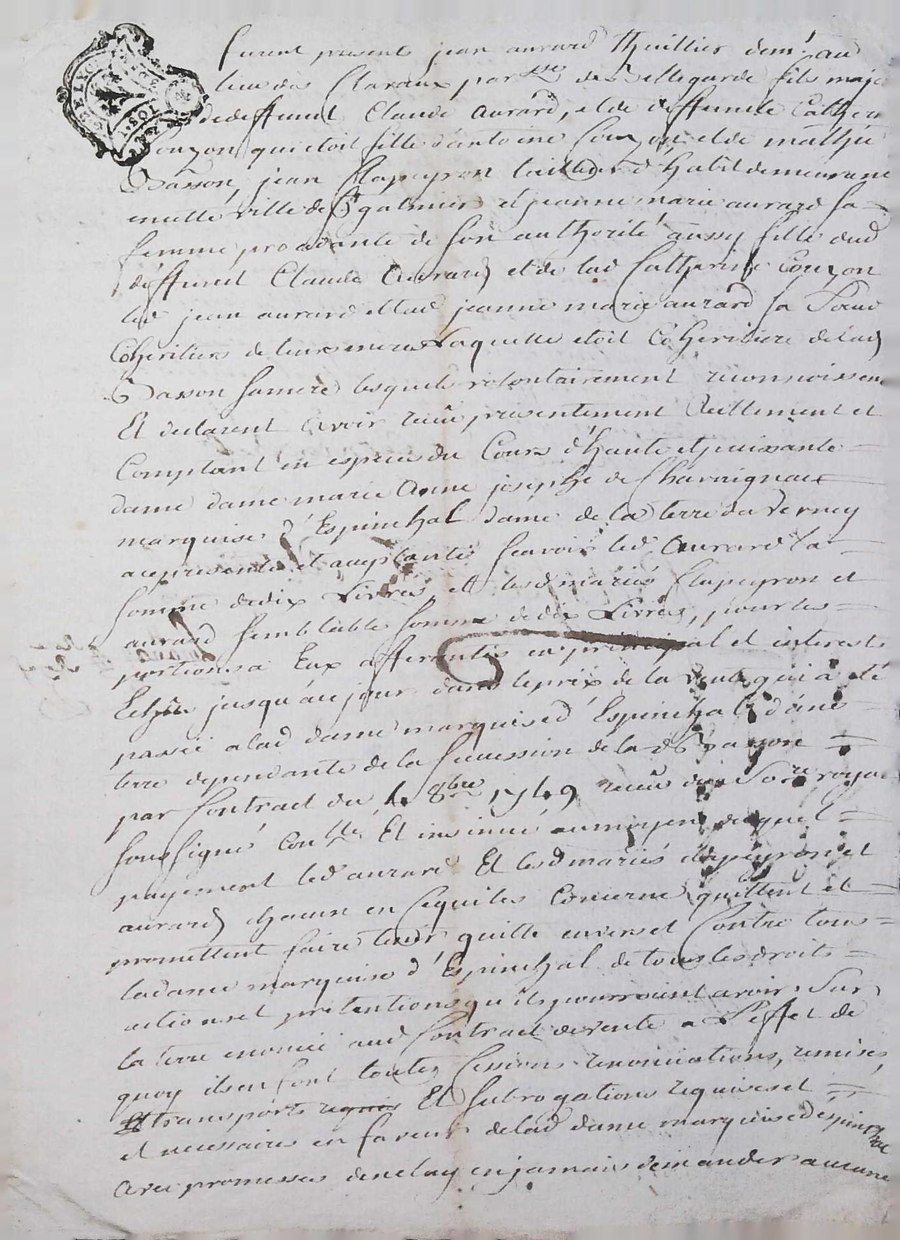 furent presents jean aurard Thuillier demt au
lieu des Claraux parsse de Bellegarde fils maje
dedeffunct Claude aurard, et de deffuncte Catherin
Couzon, qui etoit fille d'antoine Couzon et de mathie
Basson, jean Clapeyron tailleur d'habit demeurant
en cette ville de St galmier et jeanne marie aurard sa
femme procedante de son authorité aussy fille dud
deffunct Claude Aurard et de lad Catherine Couzon
led jean aurard et lad jeanne marie aurard sa Soeur
Coheritiers de leur mere laquelle etoit Coheritiere de lad
Basson sa mere lesquels volontairement reconnoissent
Et declarent avoir reçû presentement Reellement et
Comptant en especes du Cours d'haute et puissante
dame dame marie Anne josephe de Chavaignac
marquise d'Espinchal dame de la terre du Verney
acceptante Scavoir led Aurard la
Somme de dix Livres et lesd mariés Clapeyron et
aurard semblable Somme de dix Livres, pour les
portions a Eux afferentes en principal et interests
Echûs jusqu'au jour dans le prix de la vente qui a eté
passée a lad dame marquise d'Espinchal d'une
terre dependante de la Succession de lad Basson
par Contract du 4 8bre 1749 recû du No.re royal
Soussigné conllé Et insinué au moyen duquel
payement led aurard Et lesd mariés Clapeyron et
aurard chacun en ce qui les Concerne quittent et
promettent faire tenir quitte envers et Contre tous
lad dame marquise d'Espinchal de tous les droits
actions et pretentions qu'ils pourroient avoir Sur
la terre enoncée aud Contract de vente a l'Effet de
quoy ils en font toutes Cessions renonciations, remises,
Et transports requis Et Subrogations requises et
et necessaires en faveur de lad dame marquise d'Espinchal
avec promesses de ne luy en jamais demander aucune